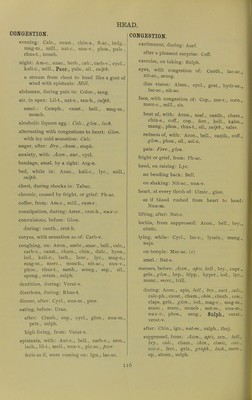 HEAD.
CONGESTION.
evening: Calc., caust., chin-s., fl-ac., indg.,
mag-m., mill., nat-c., nux-v., phos., puls.,
rhus-t., tromb.
night: Am-c., anac., berb., calc., carb-v., cycl.,
kali-c., mill., Psor., puls., sil., sulph.
a stream from chest to head like a gust of
wind with epistaxis: Mill.
abdomen, during pain in: Coloc., sang.
air, in open: Lil-t., nat-c., ran-b., sulph.
amel.: Camph., caust., hell., mag-m.,
mosch.
alcoholic liquors agg.: Calc., glon., lach.
alternating with congestions to heart: Glon.
with icy cold sensation: Calc.
anger, after: Bry., cham., staph.
anxiety, with: Acon., aur., cycl.
bandage, amel. by a tight: Arg-n.
bed, while in: Anac., kali-c., lyc., mill.,
sulph.
chest, during shocks in: Tabac.
chronic, caused by fright, or grief: Ph-ac.
coffee, from: Am-c., mill., rumx.
constipation, during: Aster., verat-b., nux-v.
convulsions, before: Glon.
during: canth., verat-b.
coryza, with sensation as of: Carb-v.
coughing, on: Acon., ambr., anac., bell., calc.,
carb-v., caust., cham., chin., dulc., hyos.,
iod., kali-c., lach., laur., lyc., mag-c.,
mag-m., merc., mosch., nit-ac., nux-v.,
phos., rhus-t., samb., seneg., sep., sil.,
spong., stram., sulph.
dentition, during: Verat-v.
diarrhoea, during: Rhus-t.
dinner, after: Cycl., nux-m., psor.
eating, before: Uran.
after: Cinnb., cop., cycl., glon., nux-m.,
psor., sulph.
high living, from: Verat-v.
epistaxis, with: Ant-c., bell., carb-v., croc.,
lach., lil-t., meli., nux-v., pic-ac., psor.
feels as if, were coming on: Ign., lac-ac.
CONGESTION
excitement, during: Asaf.
after a pleasant surprise: Coff.
exercise, on taking: Sulph.
eyes, with congestion of: Canth., lac-ac.,
nit-ac., seneg.
dim vision: Atrop., cycl., grat., hydr-ac.,
lac-ac., nit-ac.
face, with congestion of: Cop., cor-r., mera.,
merc-c., mill., sin.
heat of, with: Acon., asaf., canth., cham.,
chin-s., coff., cop., ferr., hell., kalm.,
mang., phos., thus-t., sil., sulph., valer.
redness of, with: Acon., bell., canth., coff.,
glon., phos., sil., sol-n.
pale: Ferr., glon.
fright or grief, from: Ph-ac.
head, on raising: Lyc.
on bending back: Bell.
on shaking: Nit-ac., nux-v.
heart, at every throb of: Glonr., glon.
as if blood rushed from heart to head:
Nux-m.
lifting, after: Nat-c.
lochia, from suppressed: Acon., bell., bry.,
cimic.
lying, while: Cycl., lac-c., lyssin., mang.,
naja.
on temple: Mur-ac.
amel.: Nat-c.
menses, before: Acon., apis, bell., bry., cupr.,
gels., glon., hep., hipp., hyper., iod., lyc.,
manc., merc., trill.
during: Acon., apis, bell., bry., cact., calc.,
calc-ph., caust., cham., chin., cinnb., con.,
elaps, gels., glon., iod., mag-c., mag-m.,
manc., merc., mosch., nat-m., nux-m.,
nux-v., phos., sang., Sulph., verat.,
verat-v.
after: Chin., ign., nat-m., sulph., thuj.
suppressed, from: Acon., apis, arn., bell.,
bry., calc., cham., chin., cimic., coc-
culus, ferr., gels., graph., lach., merc.,
op., stram., sulph.
116